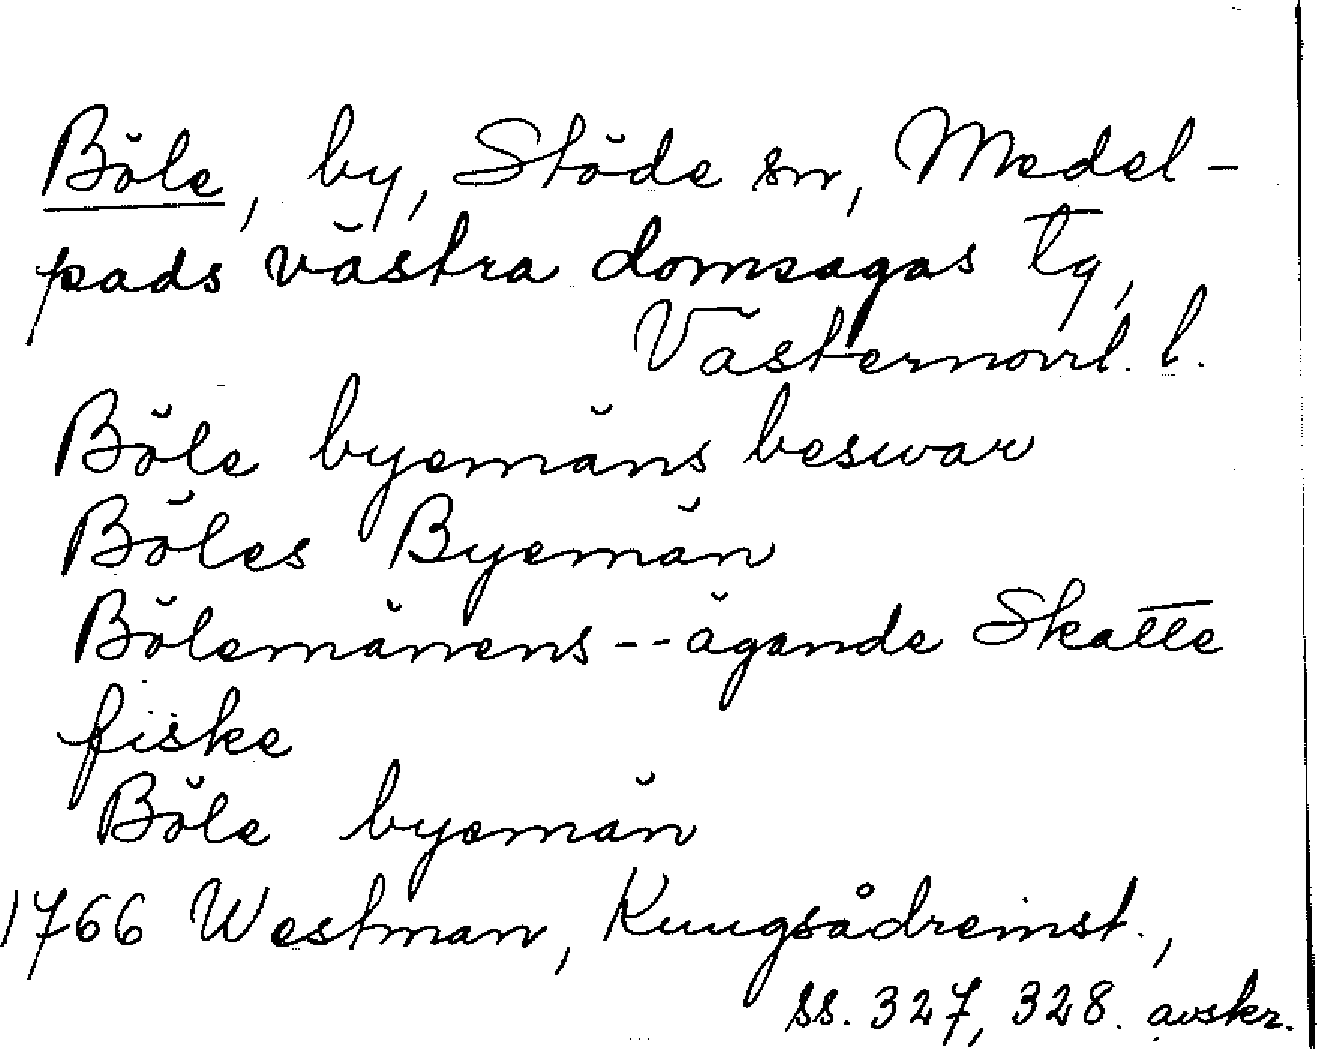 Böle, by, Stöde sn, Medel-
pads västra domsagas tg,
Västernorrl. l.
Böle byemäns beswar
Böles Byemän
Bölemännens -- ägande Skatte
fiske
Böle byemän
1766 Westman, Kungsådreinst.,
ss. 327, 328. avskr.